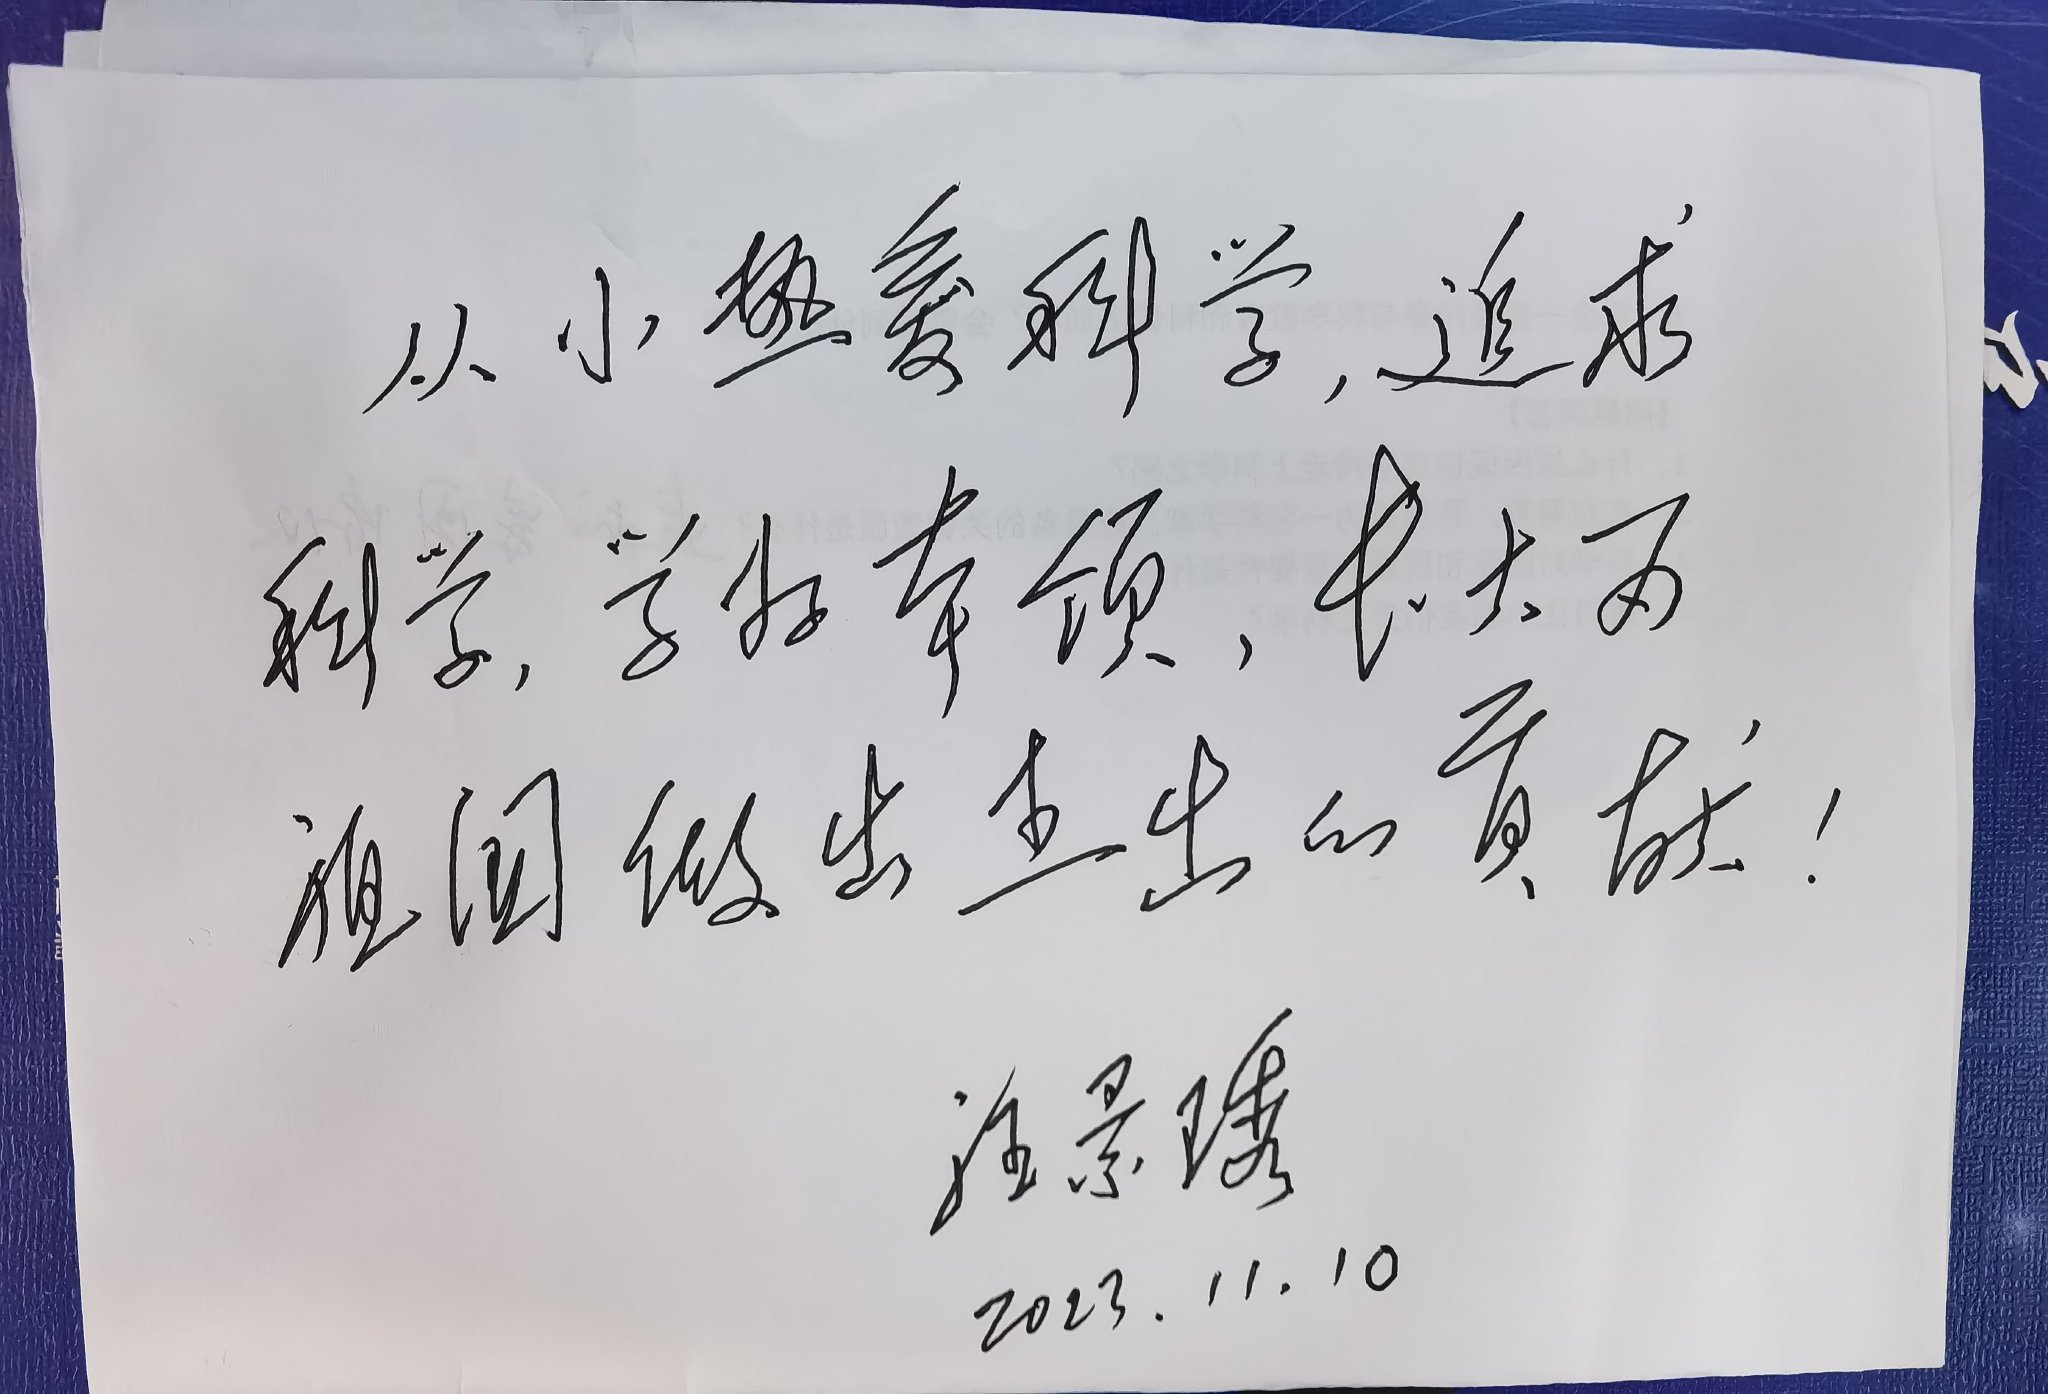 从小热爱科学,追求
科学,学好本领,长大为
祖国做出杰出的贡献!
2023.11.10